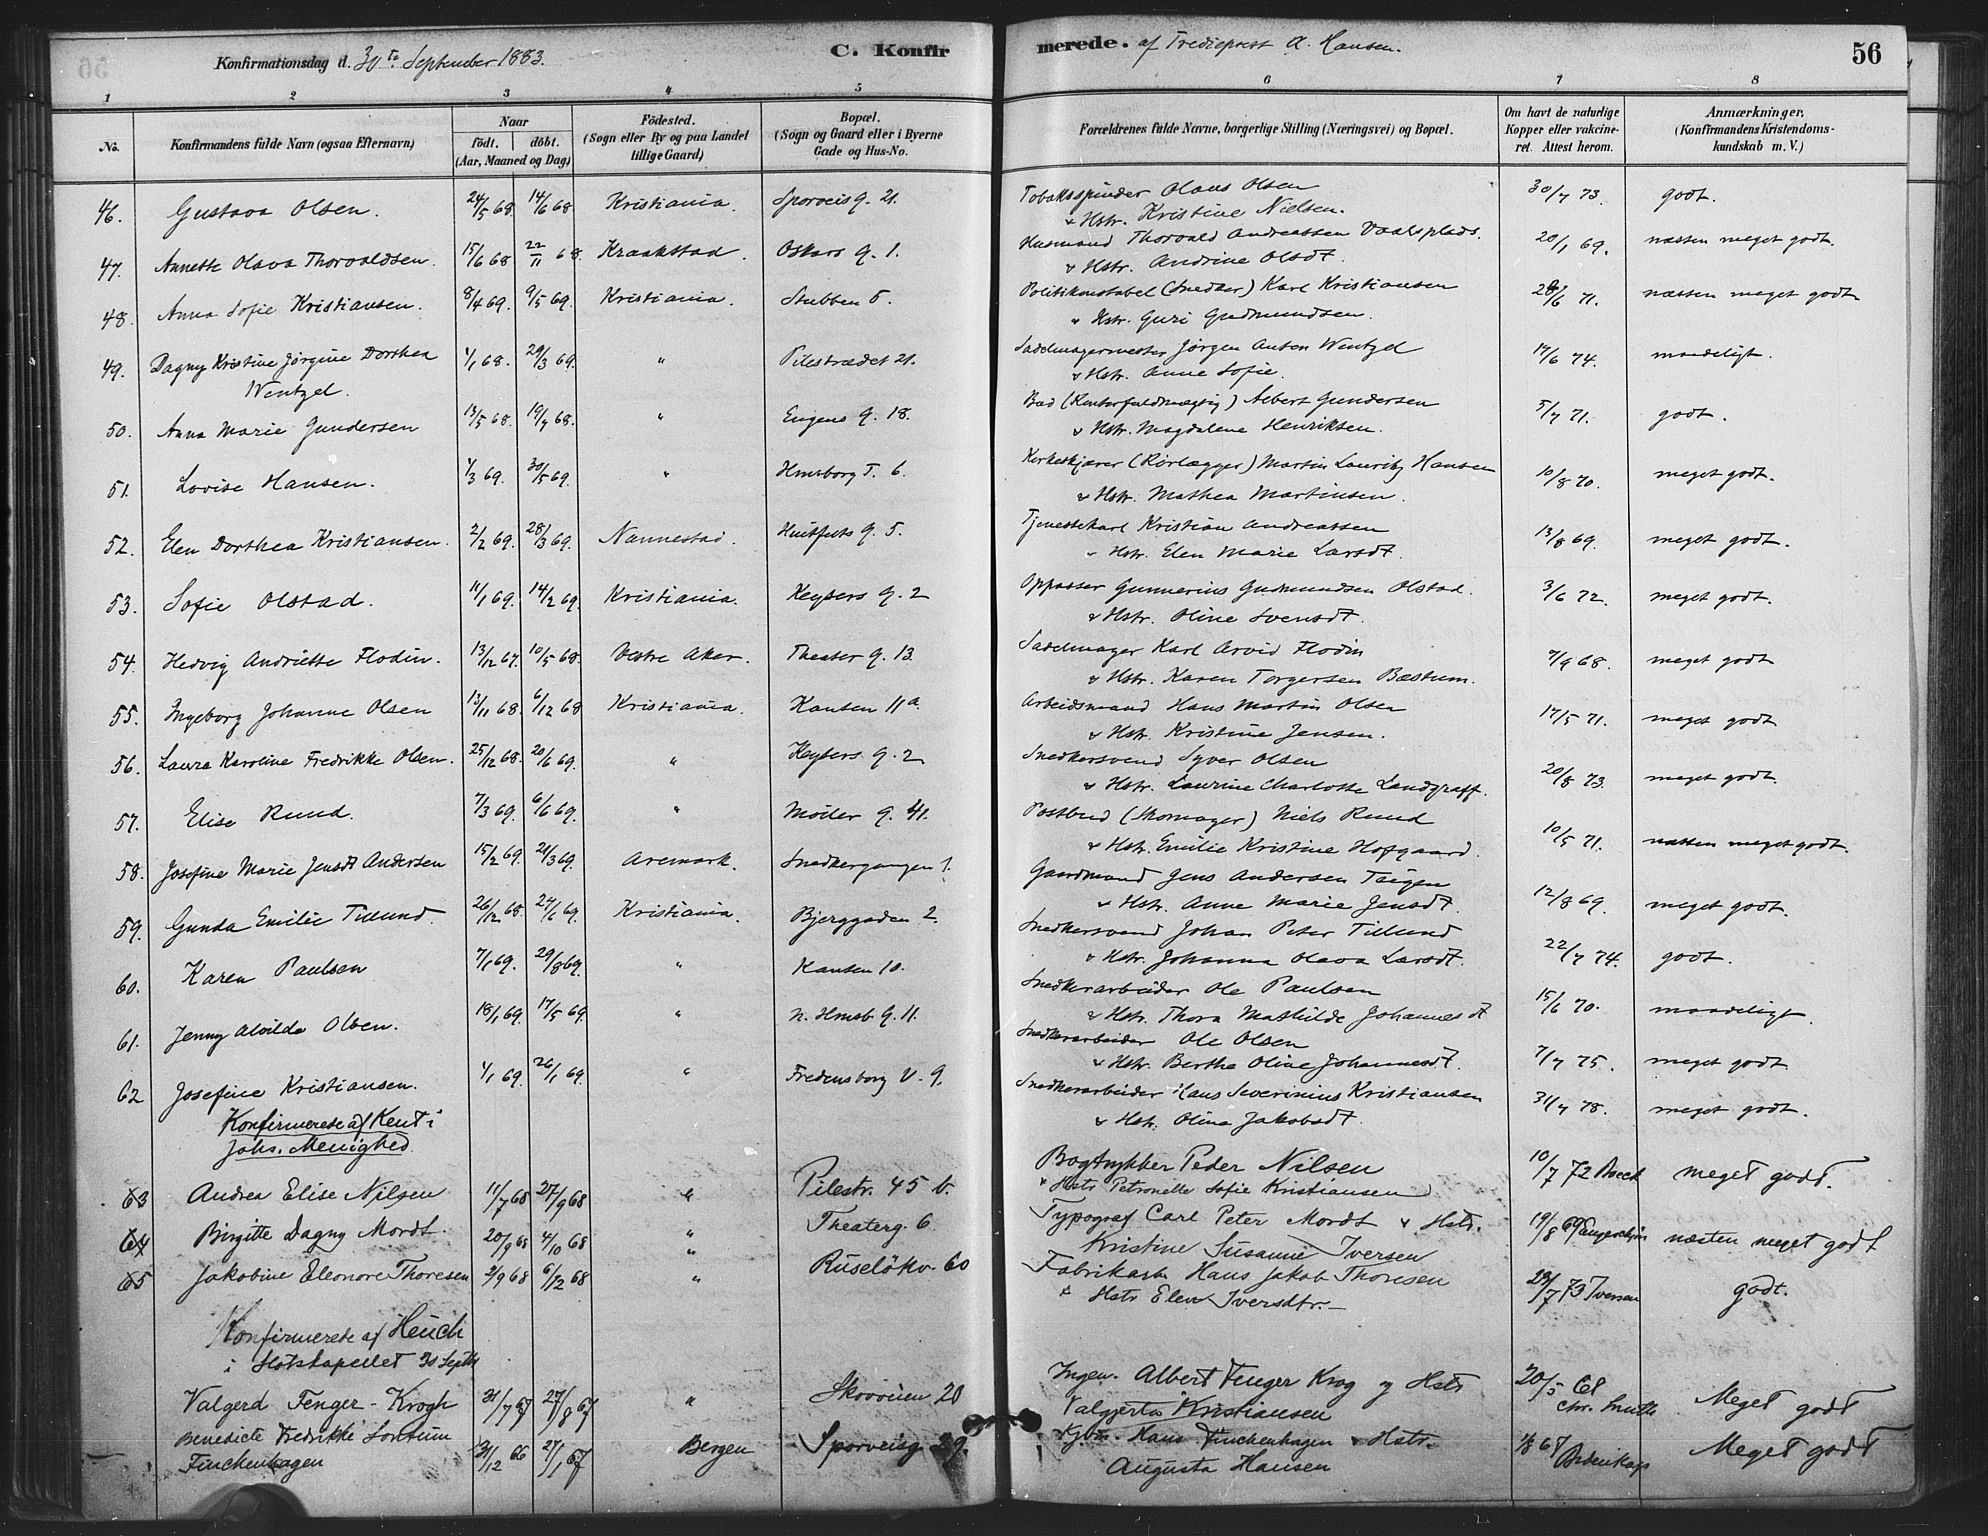 Konfirmationsdag d. 30te September 1883. C. Konfirmerede. af Tredieprest A. Hansen. 56
1 2 3 4 5 6 7 8
No. Konfirmandens fulde Navn (ogsaa Efternavn) Naar födt. döbt. (Aar, Maaned og Dag) Födested. (Sogn eller By og paa Landet tillige Gaard) Bopæl. (Sogn og Gaard eller i Byerne Gade og Hus-No. Forældrenes fulde Navne, borgerlige Stilling (Næringsvei) og Bopæl. Om havt de naturlige Kopper eller vakcineret. Attest herom. Anmærkninger. (Konfirmandens Kristendomskundskab m. V.)
46. Gustava Olsen. 24/5 68. 14/6 68. Kristiania. Sporveisg. 21. Tobaksspinder Olaus Olsen 30/7 73. godt.
& Hstr. Kristine Nielsen.
47. Annette Olava Thorvaldsen. 15/6 68 22/11 68. Kraakstad. Oskars g. 1. Husmand Thorvald Andreassen Vaalsplads. 20/1 69. næsten meget godt.
& Hstr. Andrine Olsdt.
48. Anna Sofie Kristiansen. 8/4 69. 9/5 69. Kristiania. Stubben 5. Politikonstabel (Snedker) Karl Kristiansen 28/6 71. næsten meget godt
& Hstr. Guri Gudmundsen.
49. Dagny Kristine Jørgine Dorthea 1/1 68. 29/3 69. " Pilestrædet 21. Sadelmagermester Jørgen Anton Wentzel 19/6 74. maadeligt.
Wentzel. & Hstr. Anne Sofie.
50. Anna Marie Gundersen 13/5 68. 19/7 68. " Eugens g. 18. Bud (Kontorfuldmægtig) Albert Gundersen 5/7 71. godt.
& Hstr. Magdalene Henriksen.
51. Lovise Hansen. 1/3 69. 30/5 69. " Hmsborg T. 6. Korkeskjærer (Rørlægger) Martin Lauritz Hansen 10/8 70. meget godt.
& Hstr. Mathea Martinsen.
52. Elen Dorthea Kristiansen. 2/2 69. 28/3 69. Nannestad. Huitfelts g. 5. Tjenestekarl Kristian Andreassen 13/8 69. meget godt.
" Hstr. Elen Marie Larsdt.
53. Sofie Olstad. 11/1 69. 14/2 69. Kristiania. Keysers g. 2 Oppasser Gunnerius Gudmundsen Olstad. 3/6 72. meget godt.
& Hstr. Oline Svensdt.
54. Hedvig Andriette Flodin. 13/12 67. 10/5 68. Vestre Aker. Theater g. 13. Sadelmager Karl Arvid Flodin 7/9 68. meget godt
& Hstr. Karen Torgersen Bæstum.
55. Ingeborg Johanne Olsen 13/11 68. 6/12 68 Kristiania. Hansen 11a Arbeidsmand Hans Martin Olsen 17/5 71. meget godt
& Hstr. Kristine Jensen.
56. Laura Karoline Fredrikke Olsen. 25/12 68. 20/6 69. " Keysers g. 2 Snedkersvend Syver Olsen 20/8 73. meget godt.
& Hstr. Laurine Charlotte Landgraff.
57. Elise Ruud. 7/3 69. 6/6 69. " Møller g. 41. Postbud (Skomager) Niels Ruud 10/5 71. næsten meget godt.
& Hstr. Emilie Kristine Hofgaard.
58. Josefine Marie Jensdt Andersen 15/2 69. 21/3 69. Aremark. Snedkergangen 1. Gaardmand Jens Andersen Taigen 12/8 69. meget godt.
& Hstr. Anne Marie Jensdt.
59. Gunda Emilie Tillund. 26/12 68. 24/1 69. Kristiania. Bjerggaden 2. Snedkersvend Johan Peter Tillund 22/7 74. godt.
& Hstr. Johanna Olava Larsdt.
60. Karen Paulsen 7/1 69. 29/8 69. " Kansen 10. Snedkerarbeider Ole Paulsen 15/6 70. maadeligt.
& Hstr. Thora Mathilde Johannesdt
61. Jenny Alvilda Olsen. 18/1 69. 17/5 69. " N. Hmsb g. 11. Snedkerarbeider Ole Olsen 7/7 75. meget godt
& Hstr. Berthe Oline Johannesdt.
62 Josefine Kristiansen. 4/1 69. 26/1 69. " Fredensborg V. 9. Snedkerarbeider Hans Severinius Kristiansen 31/7 78. meget godt.
& Hstr. Olina Jakobsdt.
Konfirmerede af Kent i
Johs. Menighed
63 Andrea Elise Nilsen 11/7 68 27/9 68 " Pilestr. 45 b. Bogtrykker Peder Nilsen 10/7 72 meget godt.
& Hstr Petronelle Sofie Kristiansen
64 Birgitte Dagny Mordt. 20/9 68 4/10 68 " Theaterg. 6 Typograf Carl Peter Mordt & Hstr. 19/8 69 næsten meget godt
Kristine Susanne Iversen
65 Jakobine Eleonore Thoresen 2/9 68 6/12 68 " Ruselökv. 60 Fabrikarb. Hans Jakob Thoresen 23/7 73 Iversen godt.
& Hstr Elen Iversdtr.
Konfirmerede af Heuch
i Slotskapellet 30 Septbr
Valgerd Fenger-Krogh 31/7 67 27/8 67 " Skovveien 20 Ingen. Albert Fenger Krog og Hstr 20/5 68 Chr. Smith Meget godt
Valgjerta Kristiansen
Benedicte Fredrikke Sontum 31/12 66 27/1 67 Bergen Sporveisg 29. Kjbm. Hans Finchenhagen & Hstr. 1/8 67 Meget godt
Finchenhagen Augusta Hansen